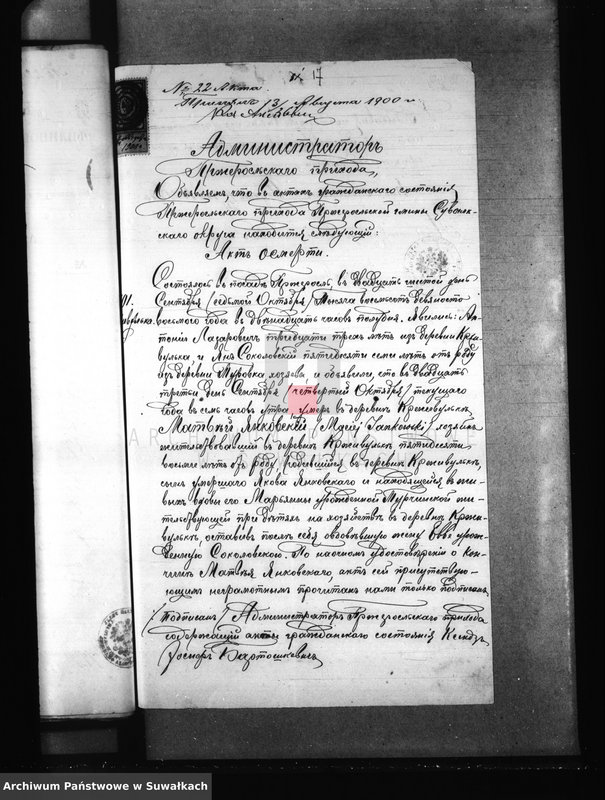 17
№ 22 Акта
13 Августа 1900 г.
Администраторъ
Пржерослскаго прихода,
Объявляем, что въ актахъ гражданскаго состоянія
Пржерослскаго прихода Пржерослской гмины Сувалк-
скаго округа находится слѣдующій:
Актъ о смерти.
Состоялось въ посадѣ Пржеросль, въ двадцать шестой день
Сентября /седьмого Октября/ тысяча восемьсотъ девяносто
восьмого года въ двѣнадцать часовъ полудня. Явились: Ан-
тоній Лазаровичъ тридцати трехъ лѣтъ изъ деревни Кржи-
вулька и Соколовскій пятидесяти семи лѣтъ отъ роду
изъ деревни Муровка хозяева и объявили, что въ двадцать
третій день Сентября /четвертый Октября/ текущаго
года въ семь часовъ утра, умеръ въ деревнѣ Крживулькѣ
Матвѣй Янковскій /Maciej Jankowski/ хозяинъ
жительствовавшій въ деревнѣ Крживулькѣ пятидесяти
восьми лѣтъ отъ роду, родившійся въ деревнѣ Крживулькѣ,
сынъ умершаго Якова Янковскаго и находящейся въ жи-
выхъ вдовы его Марьянны урожденной жи-
тельствующей при дѣтяхъ на хозяйствѣ въ деревнѣ Кржи-
вулькѣ, оставивъ послѣ себя овдовѣвшую жену Еву урож-
денную Соколовскою. По наочномъ удостовѣреніи о кон-
чинѣ Матвѣя Янковскаго, актъ сей присутствую-
щимъ неграмотнымъ прочитанъ нами только подписанъ
/подписалъ/ Администраторъ Пржерослскаго прихода
содержащій акты гражданскаго состоянія Ксендзъ
Іосифъ Бартошкевичъ
Archiwum Państwowe w Suwałkach